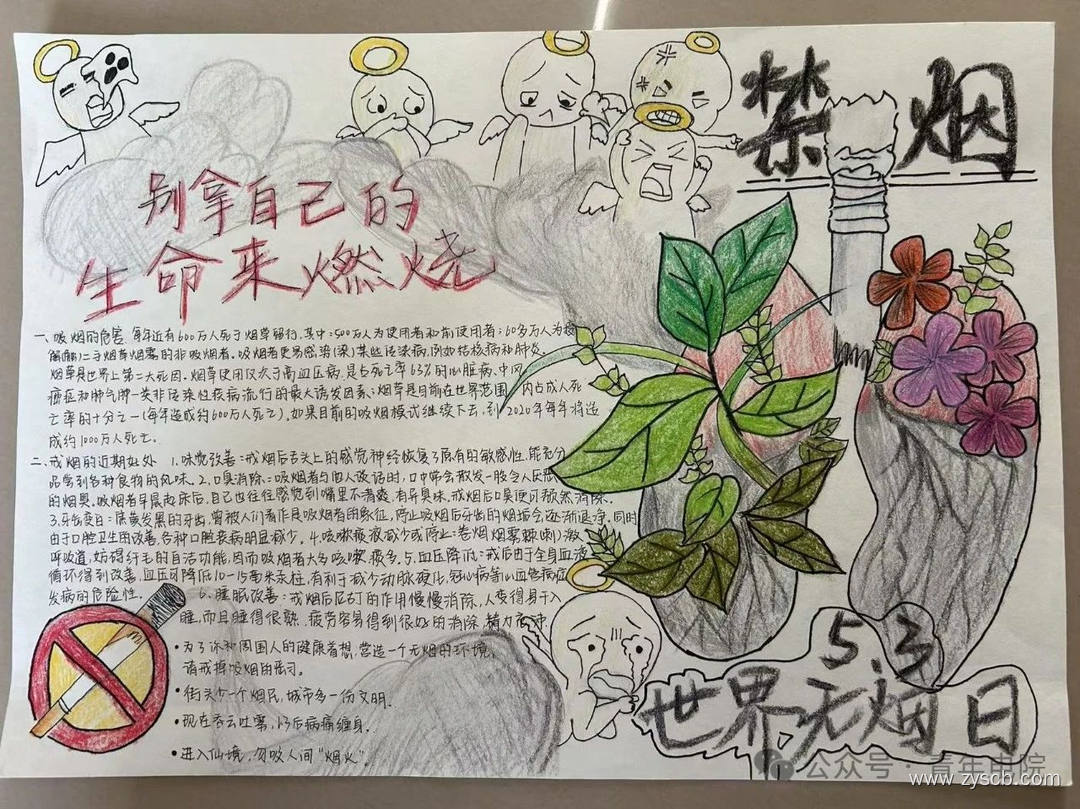 禁烟
别拿自己的
生命来燃烧
一、吸烟的危害 每年近有600万人死于烟草
其中:500万人为使用者和前使用者;60多万人为
二手烟草烟雾的非吸烟者。吸烟者更易感染(染)某些传染病,例如结核病和肺炎。
烟草是世界上第二大死因。烟草使用仅次于高血压病,是占死亡率63%的心脏病、中风
癌症和肺气肿一类非传染性疾病流行的最大诱发因素;烟草是目前在世界范围内占成人死
亡率的十分之一(每年造成约600万人死亡),如果目前的吸烟模式继续下去,到2020年每年将造
成约1000万人死亡。
二、戒烟的近期好处 1.味觉改善:戒烟后舌头上的感觉神经恢复了原有的敏感性,能充分
品尝到各种食物的风味。2.口臭消除:吸烟者与他人谈话时,口中常会散发一股令人厌
的烟臭。吸烟者早晨起床后,自己也往往感觉到嘴里不清爽,有异臭味,戒烟后口臭便可预然消除。
3.牙齿变白:原黄发黑的牙齿,曾被人们看作是吸烟者的象征,停止吸烟后牙齿的烟垢会逐渐退净。同时
由于口腔卫生的改善,各种口腔疾病明显减少。4.咳嗽痰液减少或停止:卷烟烟雾刺喇激
呼吸道,妨碍纤毛的自洁功能,因而吸烟者大多咳嗽、痰多。5.血压降低:戒后由于全身血液
循环得到改善,血压可降低10-15毫米汞柱,有利于减少动脉硬化,冠心病等心血管病症
发病的危险性。 6.睡眠改善:戒烟后尼古丁的作用慢慢消除,人变得易于入
睡,而且睡得很熟,疲劳容易得到很好的消除,精力
•为了你和周围人的健康着想,营造一个无烟的环境,
请戒掉吸烟的恶习。
•街头少一个烟民,城市多一份文明。
•现在吞云吐雾,以后病痛缠身。
•进入仙境,勿吸人间“烟火”。
5.3
世界无烟日
公众号·青年电院
www.zyscb.com